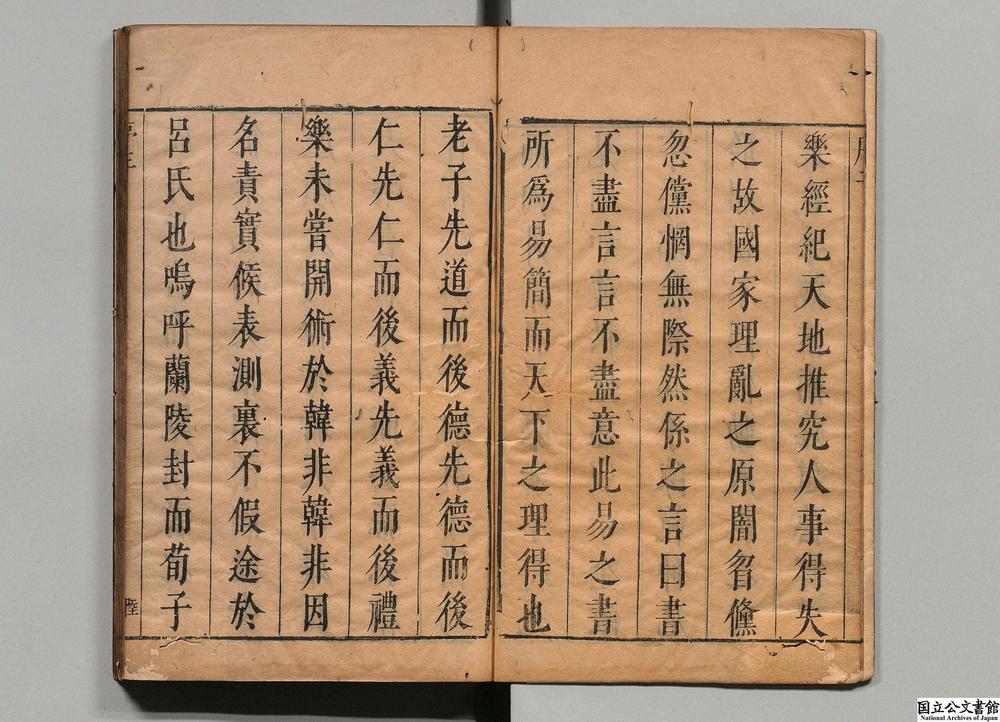 樂經紀天地推究人事得失
之故國家理亂之原闇曶儻
忽儻惘無際然係之言曰書
不盡言言不盡意此易之書
所爲易簡而天下之理得也
老子先道而後德先德而後
仁先仁而後義先義而後禮
樂未嘗開術於韓非韓非因
名責實候表測裏不假途於
呂氏也嗚呼蘭陵封而荀子
陸
国立公文書館
National Archives of Japan